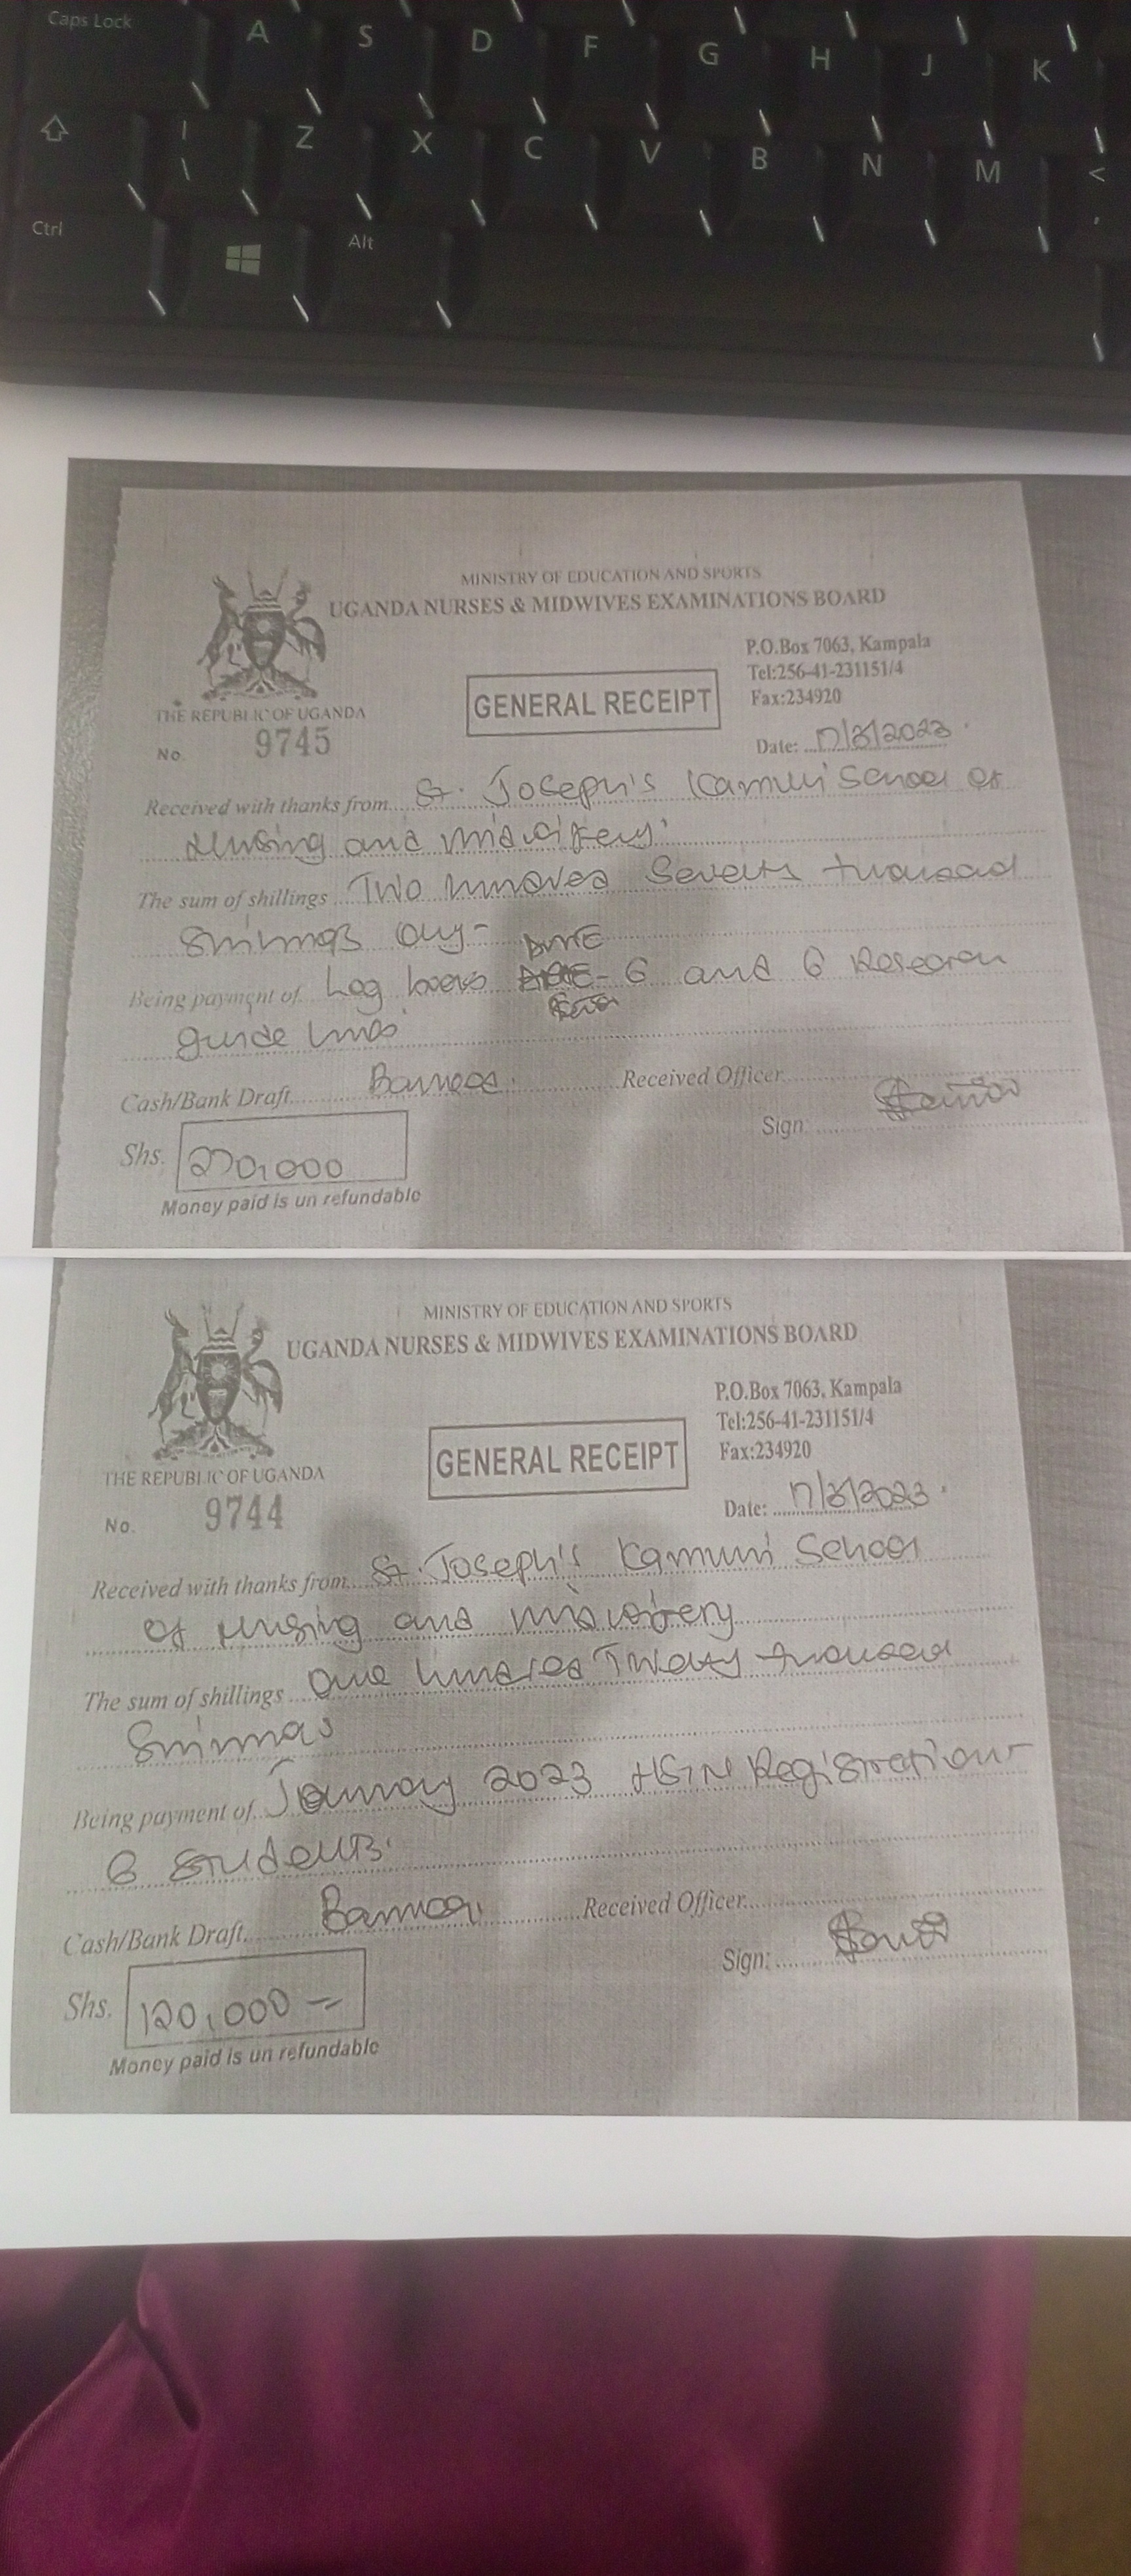 Caps Lock A S D F G H J K
Z X C V B N M <
Ctrl Alt ,
MINISTRY OF EDUCATION AND SPORTS
UGANDA NURSES & MIDWIVES EXAMINATIONS BOARD
P.O.Box 7063, Kampala
Tel:256-41-231151/4
GENERAL RECEIPT
Fax:234920
THE REPUBLIC OF UGANDA
No. 9745
Date: 17/8/2023
Received with thanks from St. Joseph's Kamuli School of
Nursing and midwifery
The sum of shillings Two hundred Seventy thousand
Shillings only-
Being payment of Log books DME - 6 and 6 Research
guide lines
Cash/Bank Draft Received Officer
Sign:
Shs. 270,000
Money paid is un refundable
MINISTRY OF EDUCATION AND SPORTS
UGANDA NURSES & MIDWIVES EXAMINATIONS BOARD
P.O.Box 7063, Kampala
Tel:256-41-231151/4
GENERAL RECEIPT
Fax:234920
THE REPUBLIC OF UGANDA
No. 9744
Date: 17/8/2023
Received with thanks from St. Joseph's Kamuli School
of Nursing and midwifery
The sum of shillings One hundred Twenty thousand
Shillings
Being payment of January 2023 Registration
6 Students
Cash/Bank Draft Received Officer
Sign:
Shs. 120,000 =
Money paid is un refundable